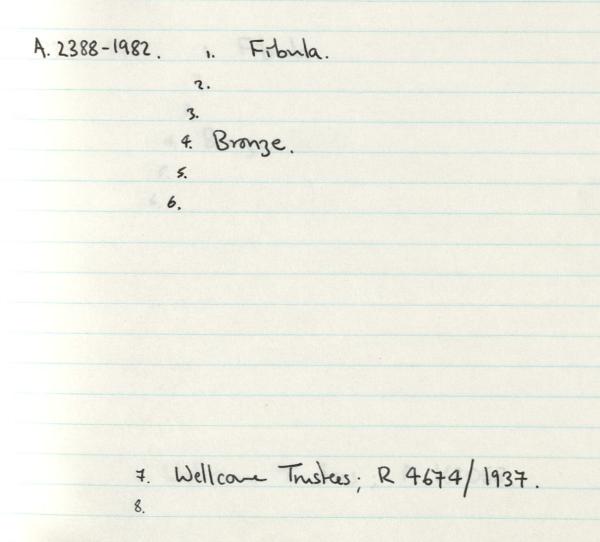 A. 2388-1982. 1. Fibula.
2.
3.
4. Bronze.
5.
6.
7. Wellcome Trustees; R 4674/1937.
8.